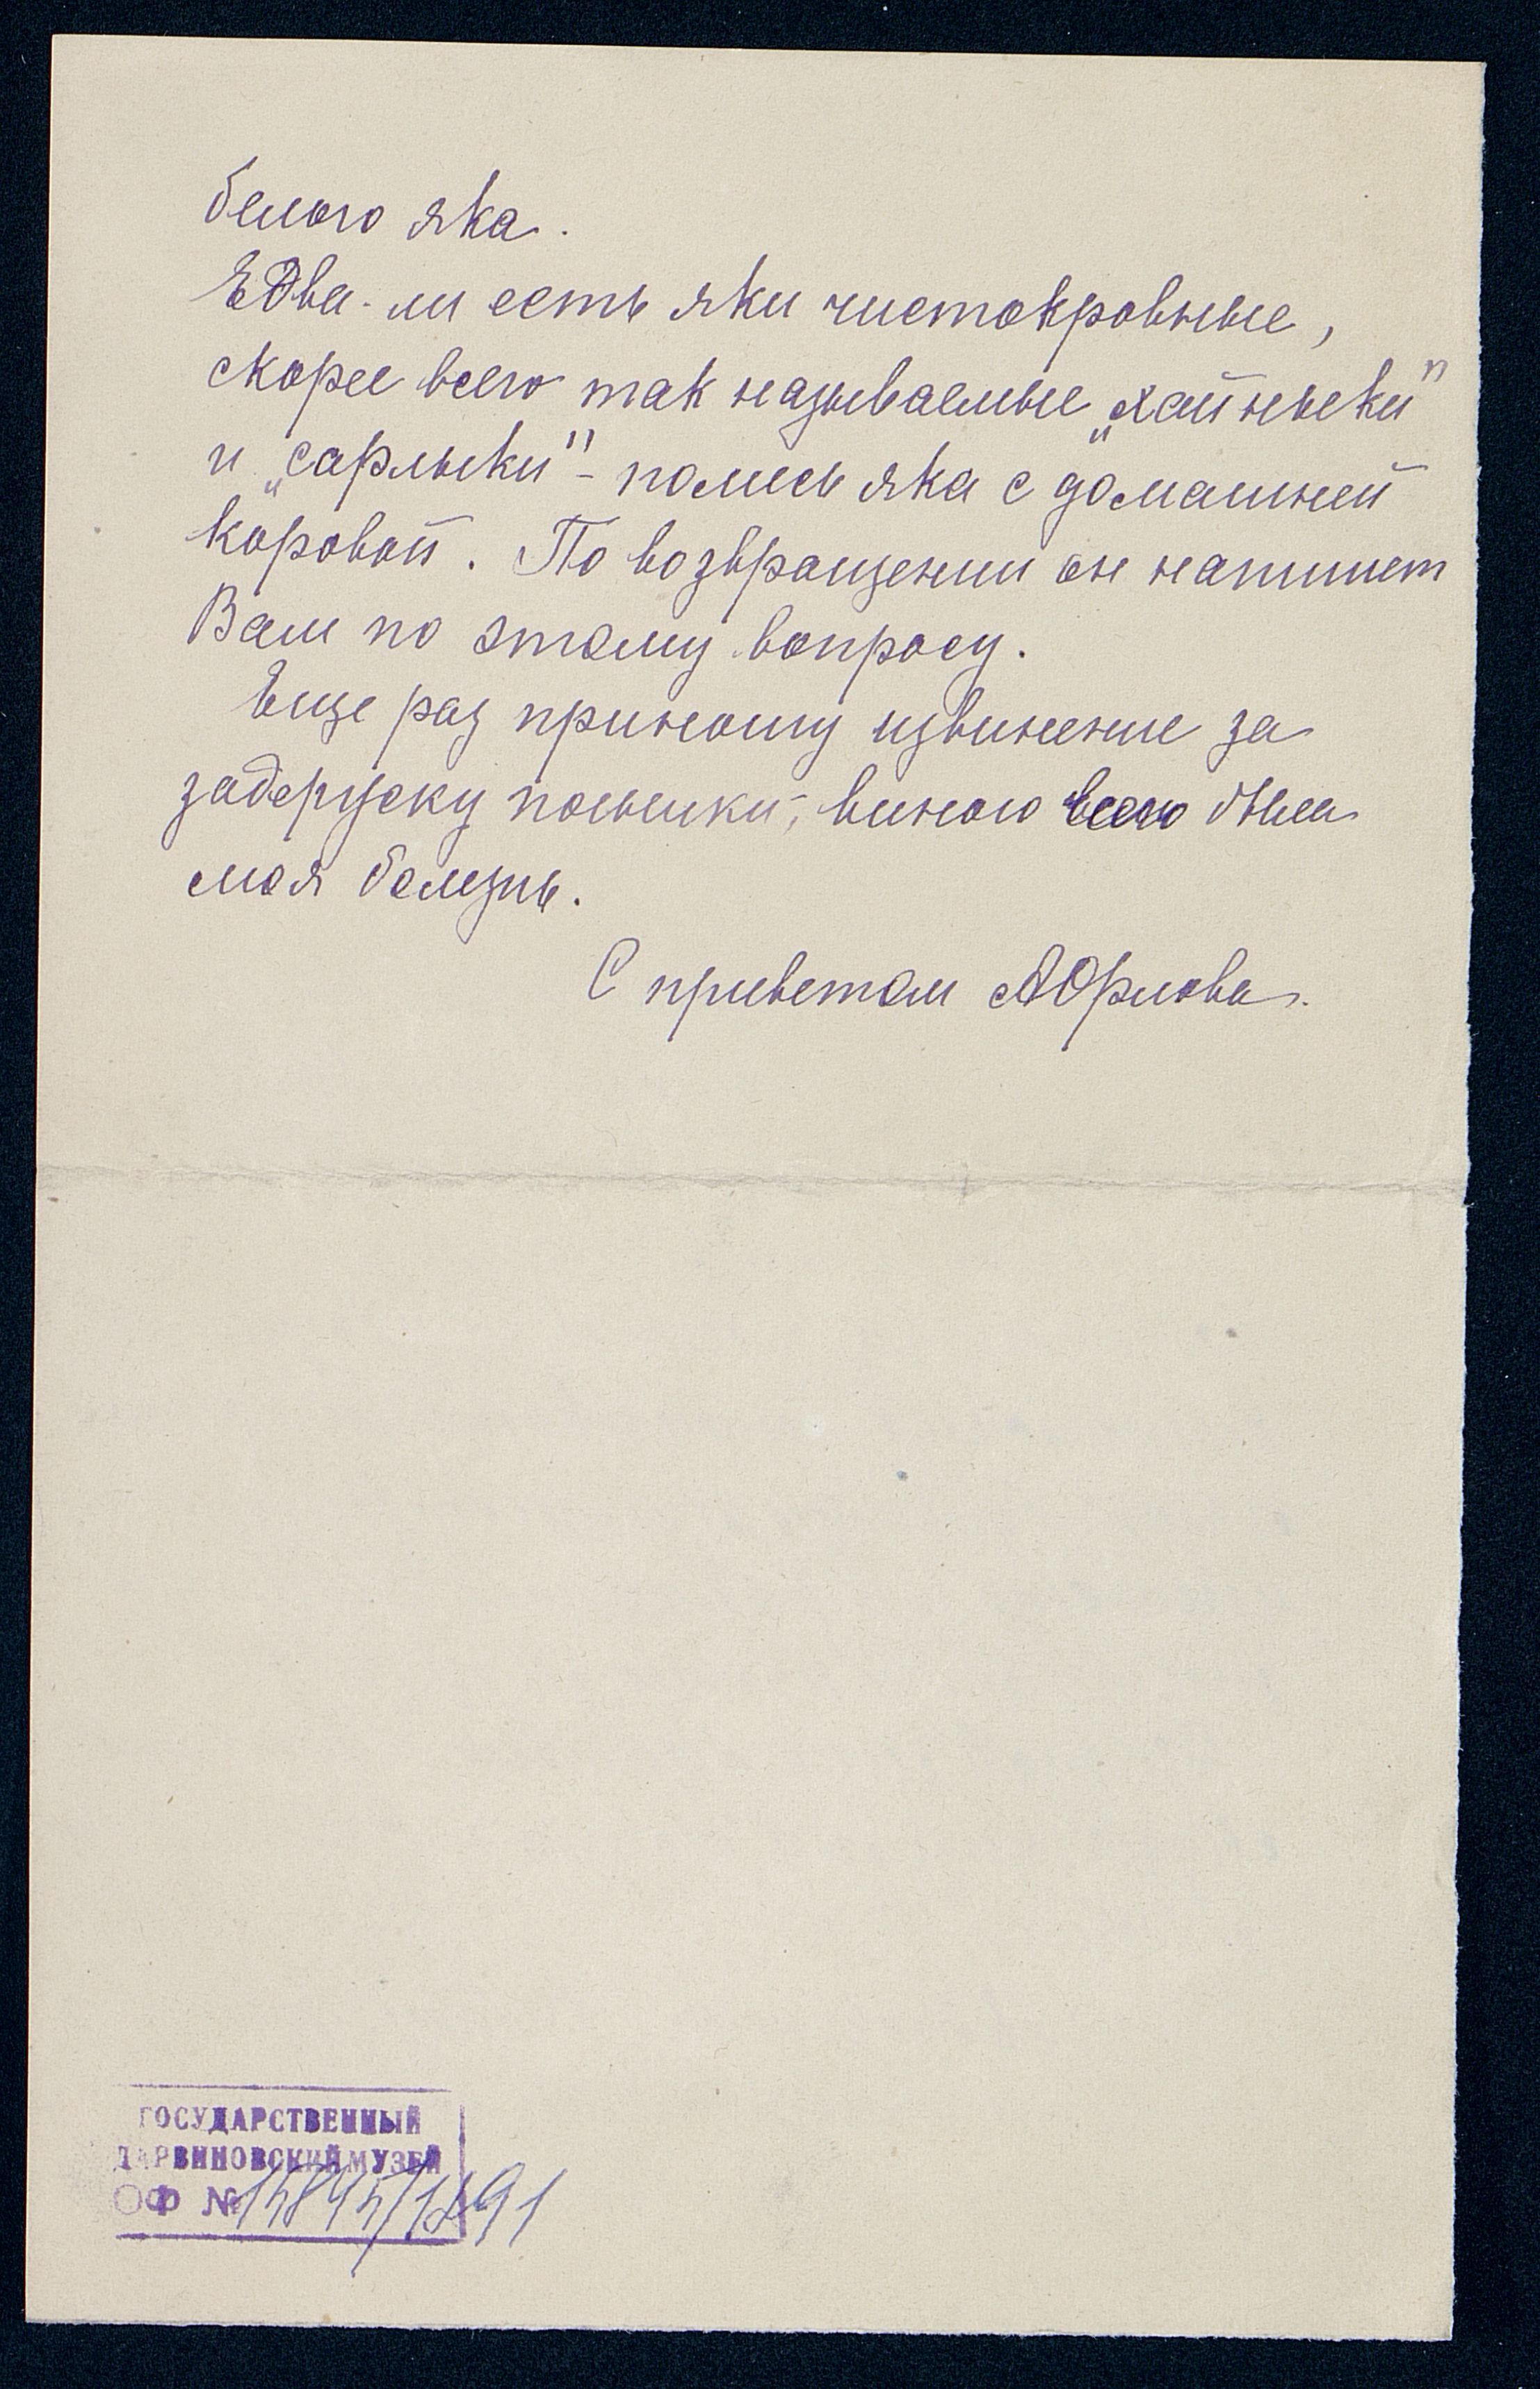 белого яка.
Едва-ли есть яки чистокровные,
скорее всего так называемые „хайныки"
и „сарлыки" - помесь яка с домашней
коровой. По возвращении он напишет
Вам по этому вопросу.
Еще раз приношу извинение за
задержку посылки, виною всего была
моя болезнь.
С приветом АОрлова.
ГОСУДАРСТВЕННЫЙ
ДАРВИНОВСКИЙ МУЗЕЙ
ОФ №